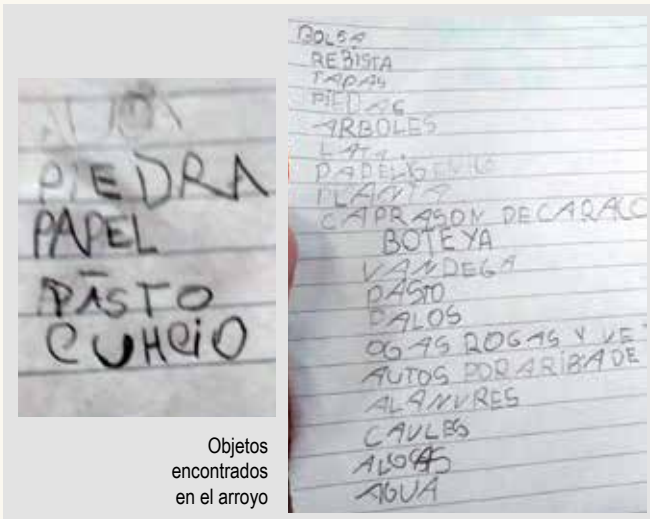 PIEDRA
PAPEL
PASTO
CUHCIO
Objetos
encontrados
en el arroyo
BOLSA
REBISTA
TAPAS
PIEDAS
ARBOLES
LATA.
PLANTA
CAPRASON DECARACO
BOTEYA
VANDEGA
PASTO
PALOS
OGAS ROGAS Y VE
AUTOS POR ARIBA DE
ALANVRES
CAVLES
AGUA